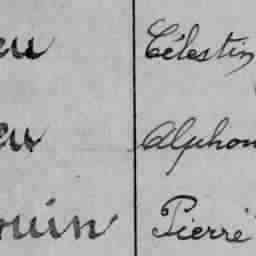 eu Célestin
eu Alphon
ouin Pierre